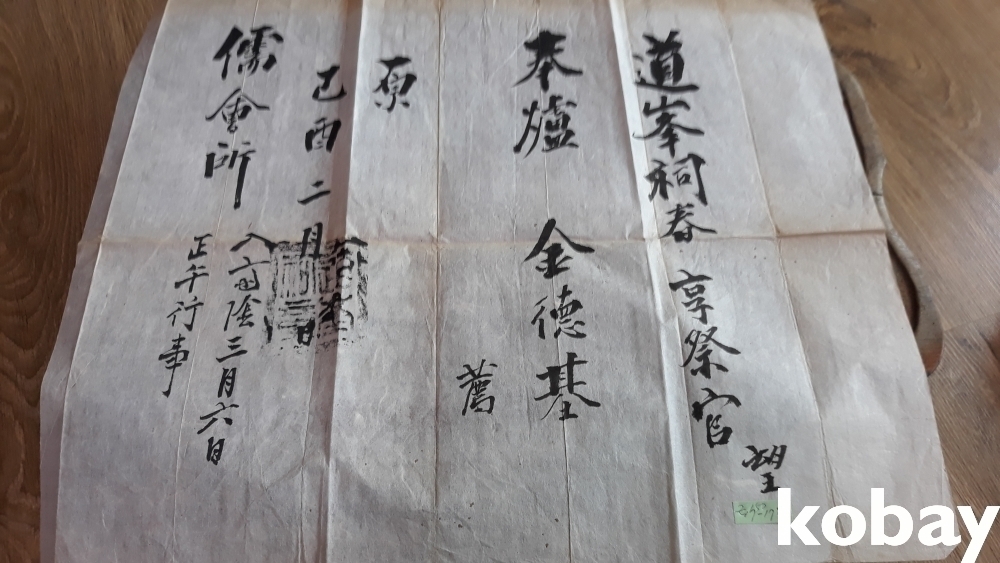 道峯祠春享祭官
望
奉爐 金德基
薦
原
己酉二月 日
儒會所
入高陰三月六日
正午行事
kobay